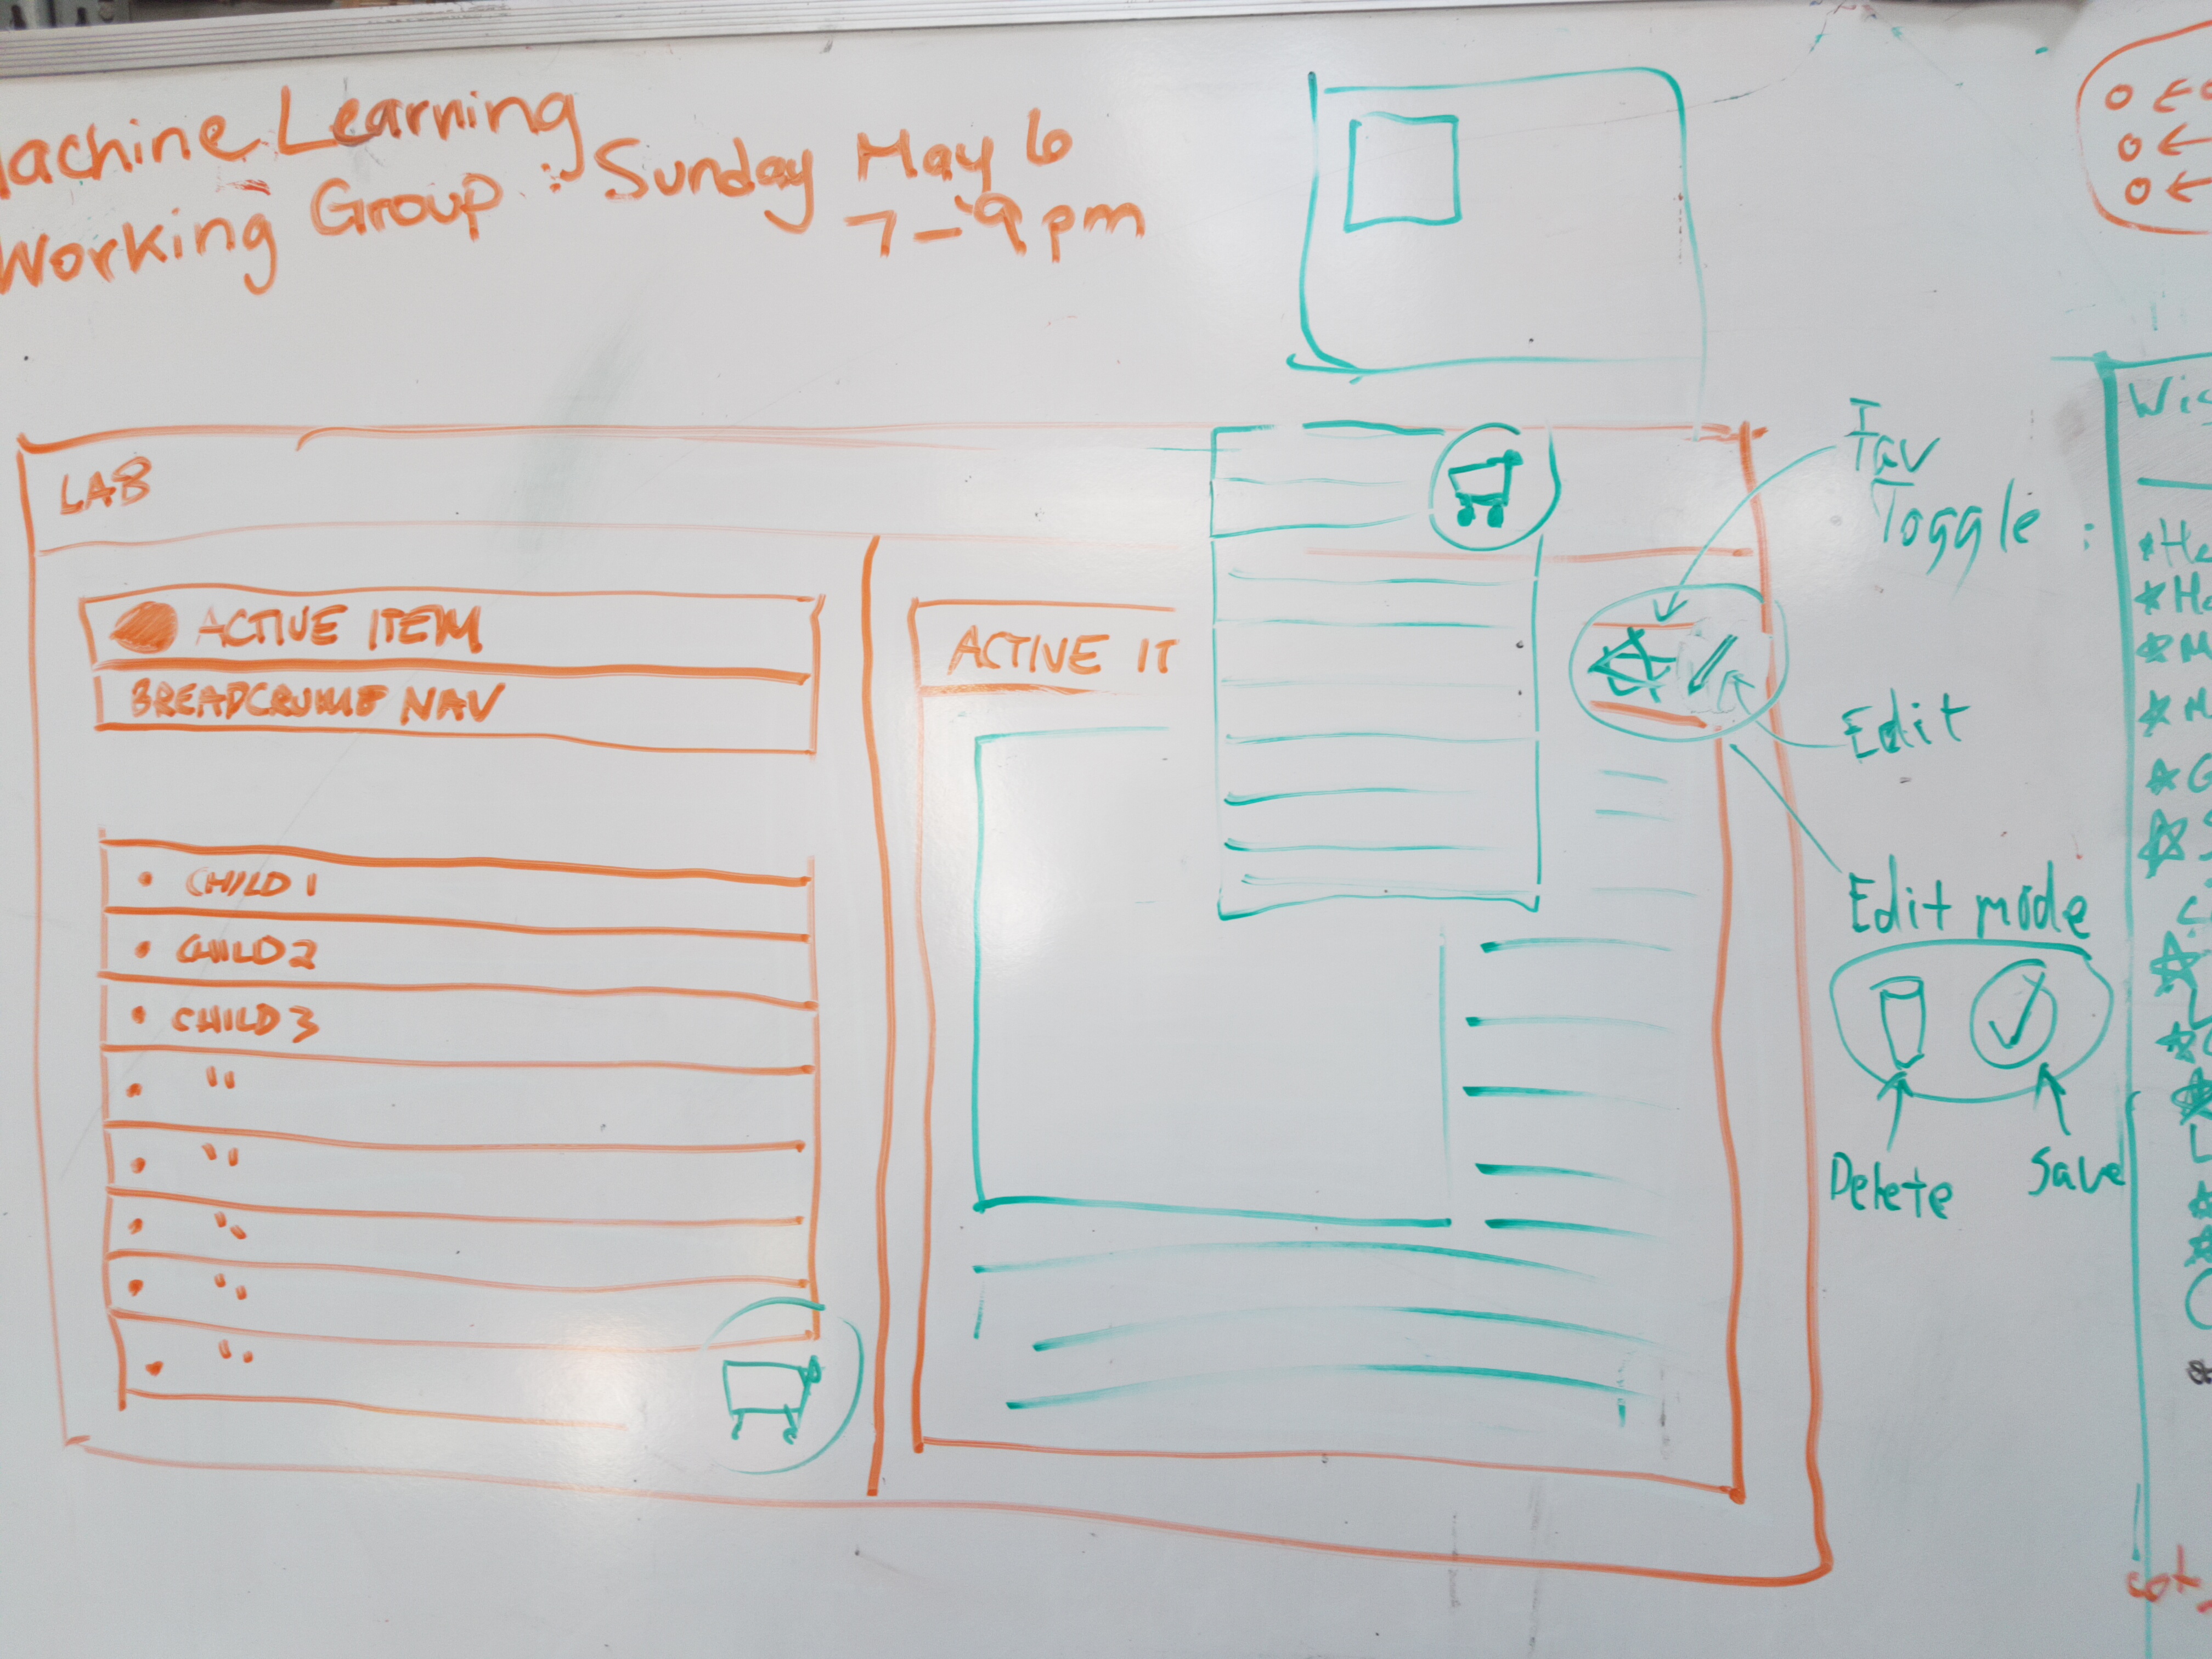 Machine Learning
Working Group : Sunday May 6
7-9pm
LAB
ACTIVE ITEM
BREADCRUMB NAV
• CHILD 1
• CHILD 2
• CHILD 3
• "
• "
• "
• "
• "
ACTIVE IT
Fav
Toggle :
Edit
Edit mode
Delete
Save